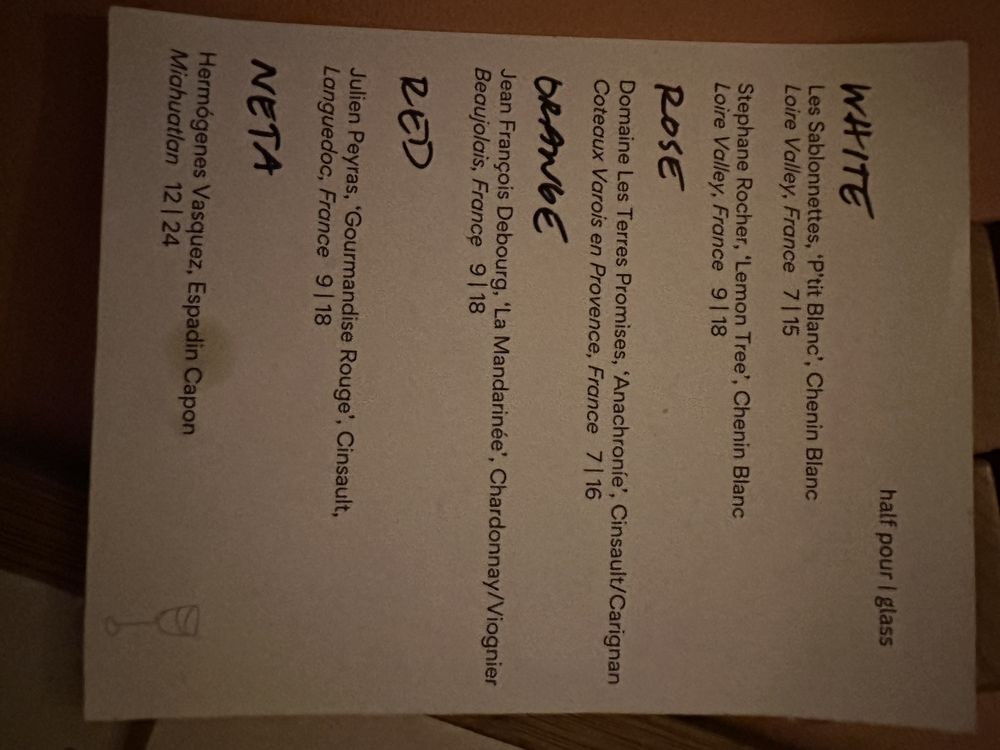 half pour | glass
WHITE
Les Sablonnettes, 'P'tit Blanc', Chenin Blanc
Loire Valley, France 7 | 15
Stephane Rocher, 'Lemon Tree', Chenin Blanc
Loire Valley, France 9 | 18
ROSE
Domaine Les Terres Promises, 'Anachroníe', Cinsault/Carignan
Coteaux Varois en Provence, France 7 | 16
ORANGE
Jean François Debourg, 'La Mandarinée', Chardonnay/Viognier
Beaujolais, France 9 | 18
RED
Julien Peyras, 'Gourmandise Rouge', Cinsault,
Languedoc, France 9 | 18
NETA
Hermógenes Vasquez, Espadin Capon
Miahuatlan 12 | 24